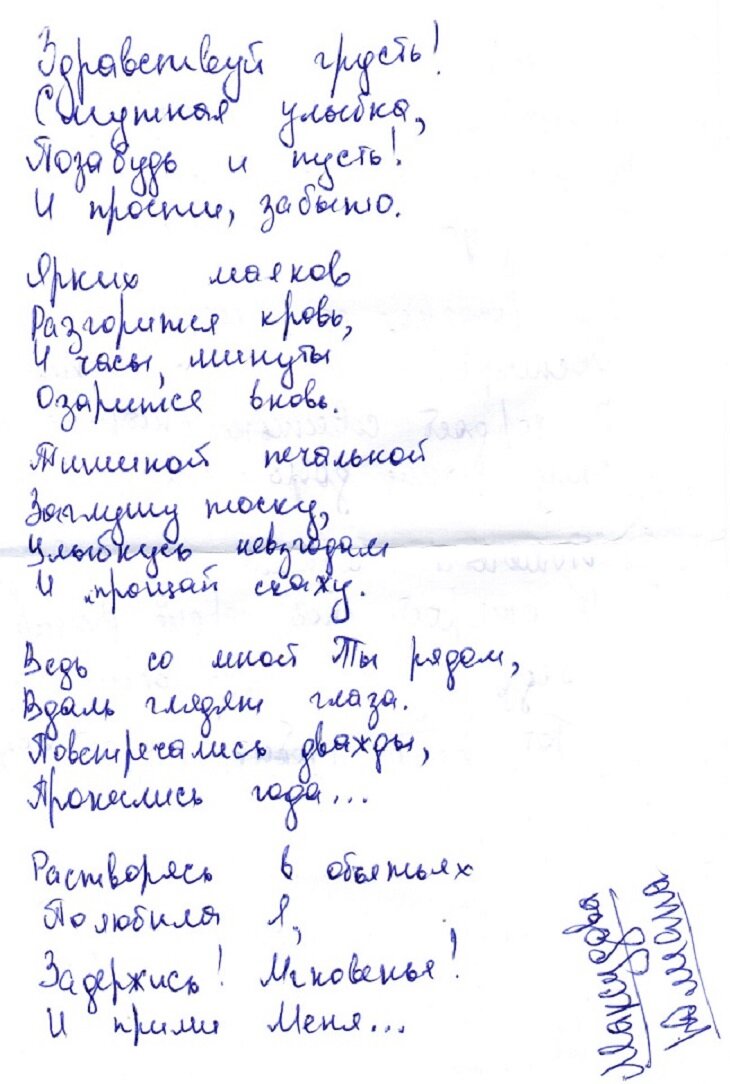 Здравствуй грусть!
Смутная улыбка,
Позабудь и пусть!
И прости, забыто.
Ярких маяков
Разгорится кровь,
И часы, минуты
Озарится вновь.
Тишиной печальной
Заглушу тоску,
Улыбнусь невзгодам
И "прощай скажу.
Ведь со мной Ты рядом,
Вдаль глядят глаза.
Повстречались дважды,
Пронеслись года...
Растворясь в объятьях
Полюбила Я,
Задержись! Мгновенье!
И прими Меня...
Максудова